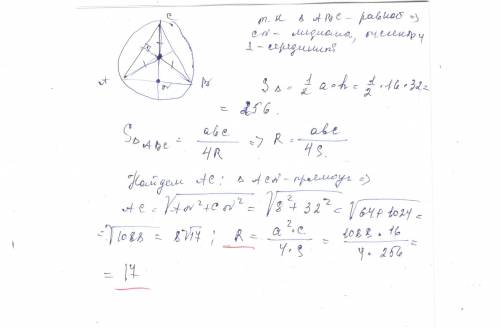 C
A
т.к. Δ ABC - равноб ⇒
CN - медиана,
N - середина
S△ = 1/2 a·h = 1/2 · 16 · 32 =
= 256.
S△ABC = abc/4R ⇒ R = abc/4S.
Найдем AC: Δ ACN - прямоуг ⇒
AC = √(AN² + CN²) = √(8² + 32²) = √(64 + 1024) =
= √1088 = 8√17 ; R = a²·c/4·S = 1088 · 16/4 · 256 =
= 17